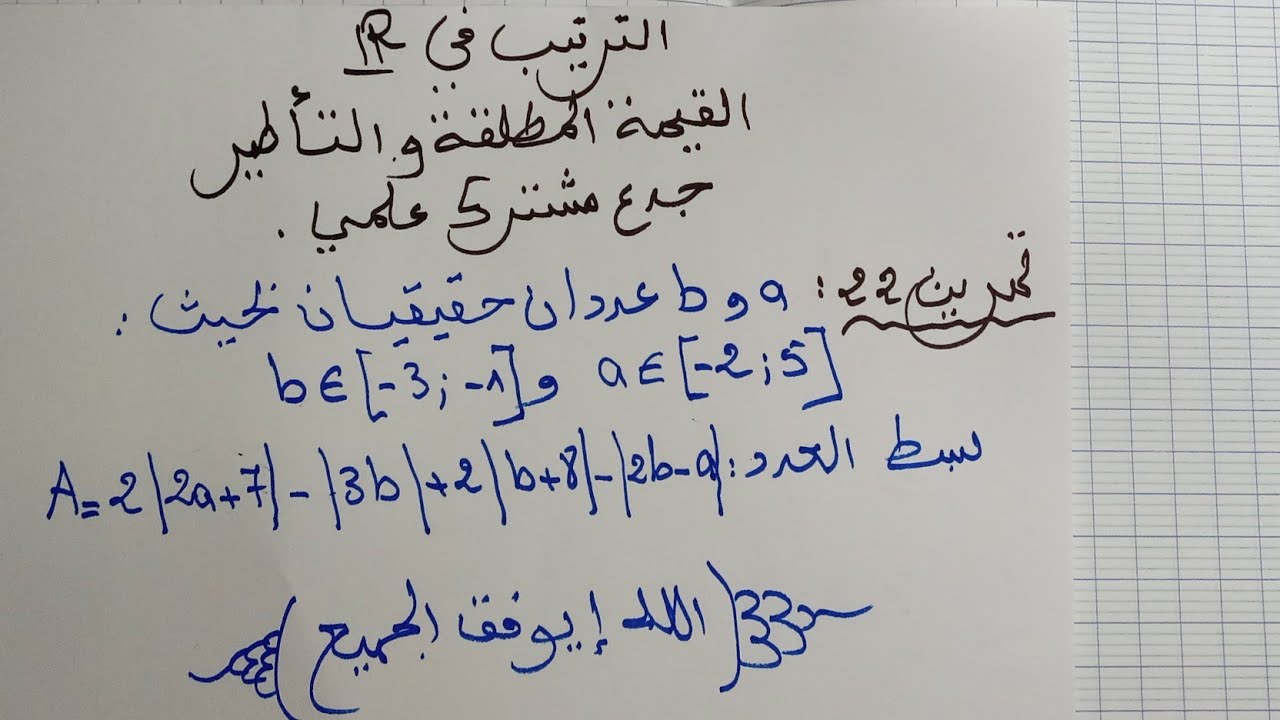 الترتيب في IR
القيمة المطلقة والتأطير
جدع مشترك علمي .
تمرين 22 : a و b عددان حقيقيان بحيث :
a ∈ [-2 ; 5] و b ∈ [-3 ; -1]
بسط العدد : A = 2|2a+7| - |3b| + 2|b+8| - |2b-a|
(الله إيوفق الجميع)